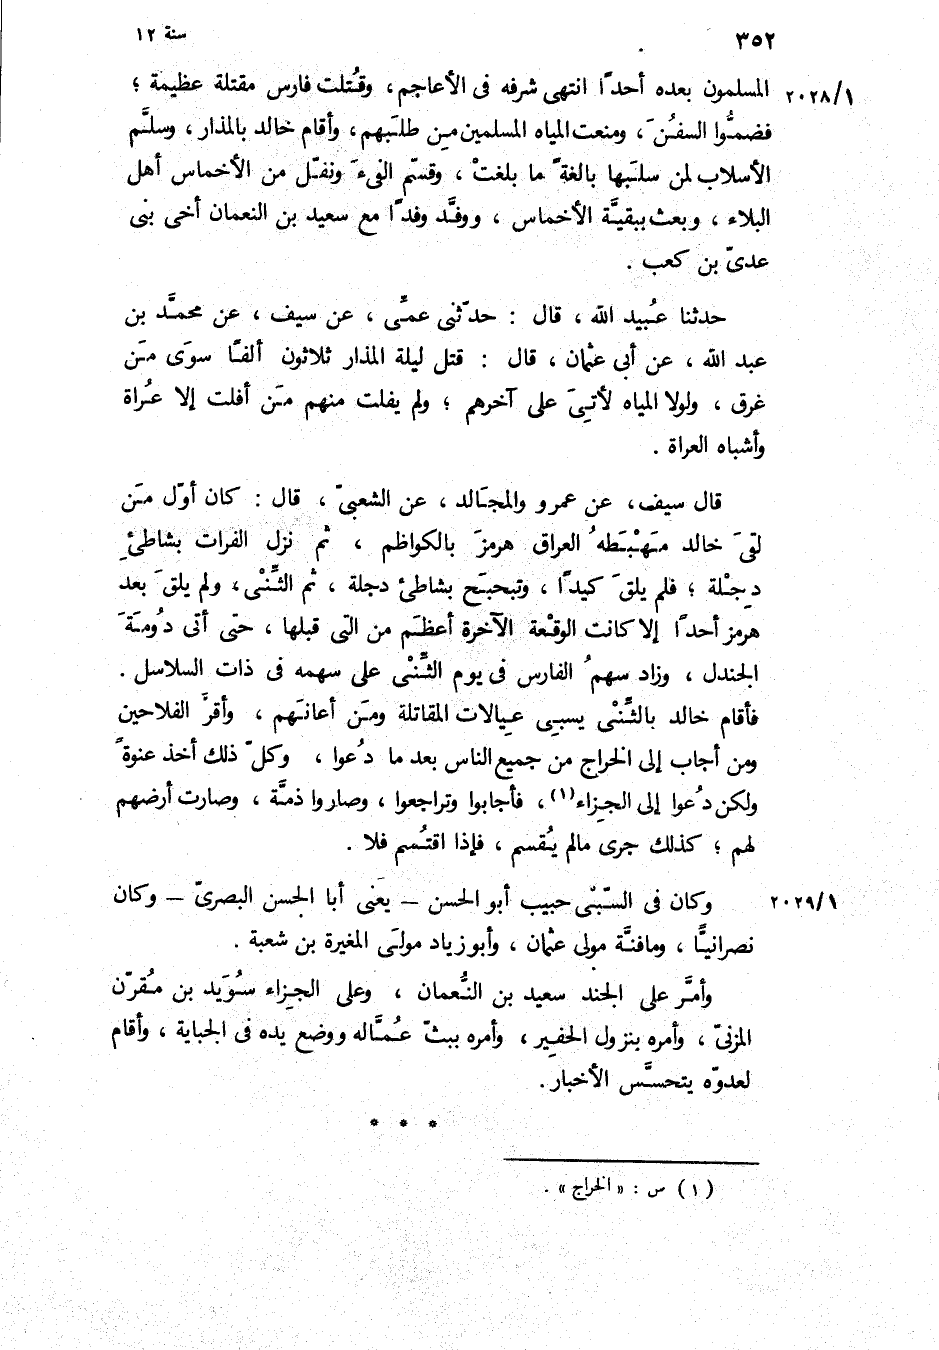 ٣٥٢ سنة ١٢
٢٠٢٨/١ المسلمون بعده أحدًا انتهى شرفه فى الأعاجم، وقُتلت فارس مقتلة عظيمة ؛
فضمُّوا السفُنَ ، ومنعت المياه المسلمين مِن طلَبهم، وأقام خالد بالمذار ، وسلَّم
الأسلاب لمن سلَبها بالغةً ما بلغتْ ، وقسّم الفىءَ ونفّل من الأخماس أهل
البلاء ، وبعث ببقيَّة الأخماس ، ووفَّد وفدًا مع سعيد بن النعمان أخى بنى
عدىّ بن كعب .
حدثنا عُبيد الله ، قال : حدّثنى عمِّى ، عن سيف ، عن محمَّد بن
عبد الله ، عن أبى عثمان ، قال : قتل ليلة المذار ثلاثون ألفًا سوَى مَن
غرق ، ولولا المياه لأتِىَ على آخرهم ؛ ولم يفلت منهم مَن أفلت إلا عُراة
وأشباه العراة .
قال سيف، عن عمرو والمجَالد ، عن الشعبىّ ، قال : كان أوّل مَن
لقىَ خالد مَهْبَطه ُ العراق هرمزَ بالكواظم ، ثم نزل الفرات بشاطئِ
دِجْلة ؛ فلم يلقَ كيدًا ، وتبحبَح بشاطئ دجلة ، ثم الثِّنْى، ولم يلقَ بعد
هرمز أحدًا إلا كانت الوقْعة الآخرة أعظَم من التى قبلها ، حتى أتى دُومَةَ
الجندل ، وزاد سهمُ الفارس فى يوم الثِّنْى على سهمه فى ذات السلاسل .
فأقام خالد بالثِّنْى يسبِى عِيالات المقاتلة ومَن أعانَهم ، وأقرَّ الفلاحين
ومن أجاب إلى الخراج من جميع الناس بعد ما دُعوا ، وكلّ ذلك أخذ عنوةً
ولكن دُعوا إلى الجِزاء(١) ، فأجابوا وتراجعوا ، وصاروا ذمَّة ، وصارت أرضهم
لهم ؛ كذلك جرى مالم يُقسم ، فإذا اقتُسم فلا .
٢٠٢٩/١ وكان فى السّبْى حبيب أبو الحسن – يعَنى أبا الحسن البصرىّ – وكان
نصرانيًّا ، ومافنَّة مولى عثمان ، وأبو زياد مولَى المغيرة بن شعبة .
وأمَّر على الجند سعيد بن النُّعمان ، وعلى الجِزاء سُوَيد بن مُقرّن
المزنىّ ، وأمره بنزول الحفِير ، وأمره ببثّ عُمَّاله ووضع يده فى الجباية ، وأقام
لعدوّه يتحسَّس الأخبار .
* * *
(١) س : «الخراج» .